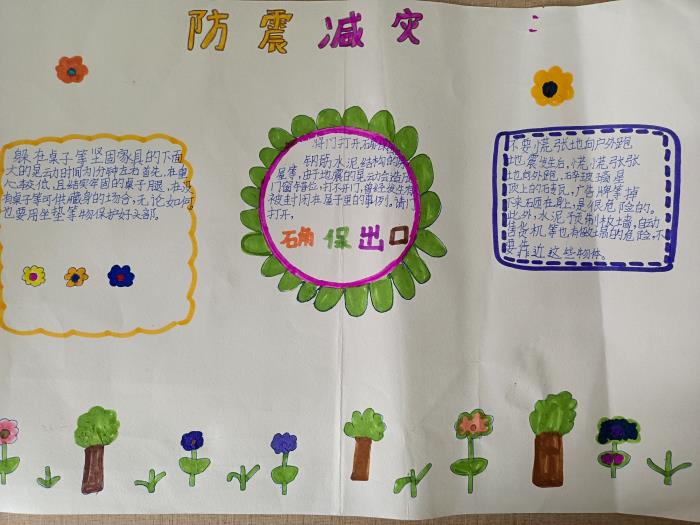 防震减灾
躲在桌子等坚固家具的下面
大的晃动时间约1分钟左右首先,在重
心较低,且结实牢固的桌子腿,在没
有桌子等可供藏身的场合,无论如何
也要用坐垫等物保护好头部。
将门打开,确保
钢筋,水泥结构的房
屋等,由于地震的晃动会造成
门窗错位,打不开门,曾经发生有人
被封闭在屋子里的事例。请门
打开,
确保出口
不要慌张地向户外跑
地震发生后,慌慌张张
地向外跑,碎玻璃屋
顶上的砖瓦,广告牌等掉
下来砸在身上,是很危险的。
此外,水泥预制板墙,自动
售货机等也有倒塌的危险,不
要靠近这些物体。